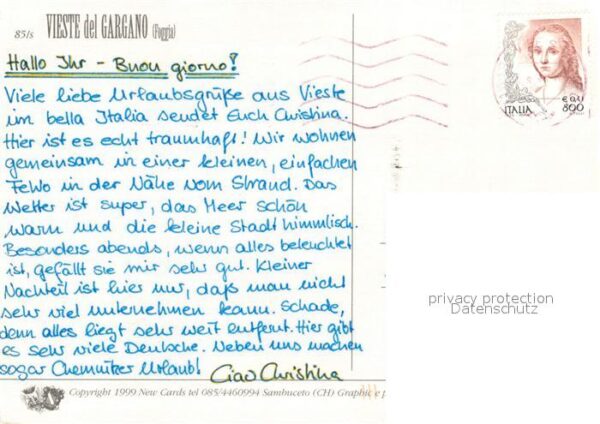 85/s VIESTE del GARGANO (Foggia)
Hallo Ihr - Buon giorno!
Viele liebe Urlaubsgrüße aus Vieste
im bella Italia sendet Euch Christina.
Hier ist es echt traumhaft! Wir wohnen
gemeinsam in einer kleinen, einfachen
FeWo in der Nähe vom Strand. Das
Wetter ist super, das Meer schön
warm und die kleine Stadt himmlisch.
Besonders abends, wenn alles beleuchtet
ist, gefällt sie mir sehr gut. Kleiner
Nachteil ist hier nur, daß man nicht
sehr viel unternehmen kann. Schade,
denn alles liegt sehr weit entfernt. Hier gibt
es sehr viele Deutsche. Neben uns machen
sogar Chemnitzer Urlaub!
Ciao Christina
Copyright 1999 New Cards tel 085/4460994 Sambuceto (CH) Graphic e p
ITALIA
800
privacy protection
Datenschutz